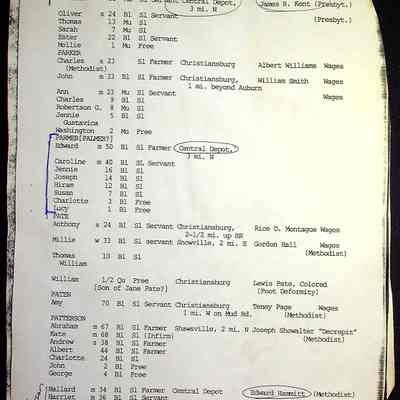 Central Depot, James R. Kent (Presbyt.)
3 mi. N
Oliver s 24 Bl Sl Servant (Presbyt.)
Thomas 13 Mu Sl
Sarah 7 Mu Sl
Ester 22 Bl Sl Servant
Mollie 1 Mu Free
PARKER
Charles s 23 Sl Farmer Christiansburg Albert Williams Wages
(Methodist)
John m 33 Bl Sl Farmer Christiansburg, William Smith Wages
1 mi. beyond Auburn
Ann m 23 Mu Sl Servant Wages
Charles 9 Bl Sl
Robertson G. 8 Mu Sl
Jennie 5 Bl Sl
Gustavica
Washington 2 Mu Free
PARMER[PALMER?]
Edward m 50 Bl Sl Farmer Central Depot,
3 mi. N
Caroline m 40 Bl Sl Servant
Jennie 16 Bl Sl
Joseph 14 Bl Sl
Hiram 12 Bl Sl
Susan 7 Bl Sl
Charlotte 3 Bl Free
Lucy 1 Bl Free
PATE
Anthony s 24 Bl Sl Servant Christiansburg, Rice D. Montague Wages
2-1/2 mi. up RR
Millie w 33 Bl Sl servant Showville, 2 mi. S Gordon Hall Wages
(Methodist)
Thomas 10 Bl Sl
William
William 1/2 Qu Free Christiansburg Lewis Pate, Colored
[Son of Jane Pate?] (Foot Deformity)
PATEN
Amy 70 Bl Sl Servant Christiansburg Teney Page Wages
1 mi. W on Mud Rd. (Methodist)
PATTERSON
Abraham m 67 Bl Sl Farmer Shawsville, 2 mi. N Joseph Showalter "Decrepit"
Kate m 68 Bl Sl (Infirm) (Methodist)
Andrew s 38 Bl Sl Farmer
Albert 44 Bl Sl Farmer
Charlotte 24 Bl Sl
John 2 Bl Free
George 4 Bl Free
Mallard m 34 Bl Sl Farmer Central Depot Edward Hammitt (Methodist)
Harriet m 36 Bl Sl Servant